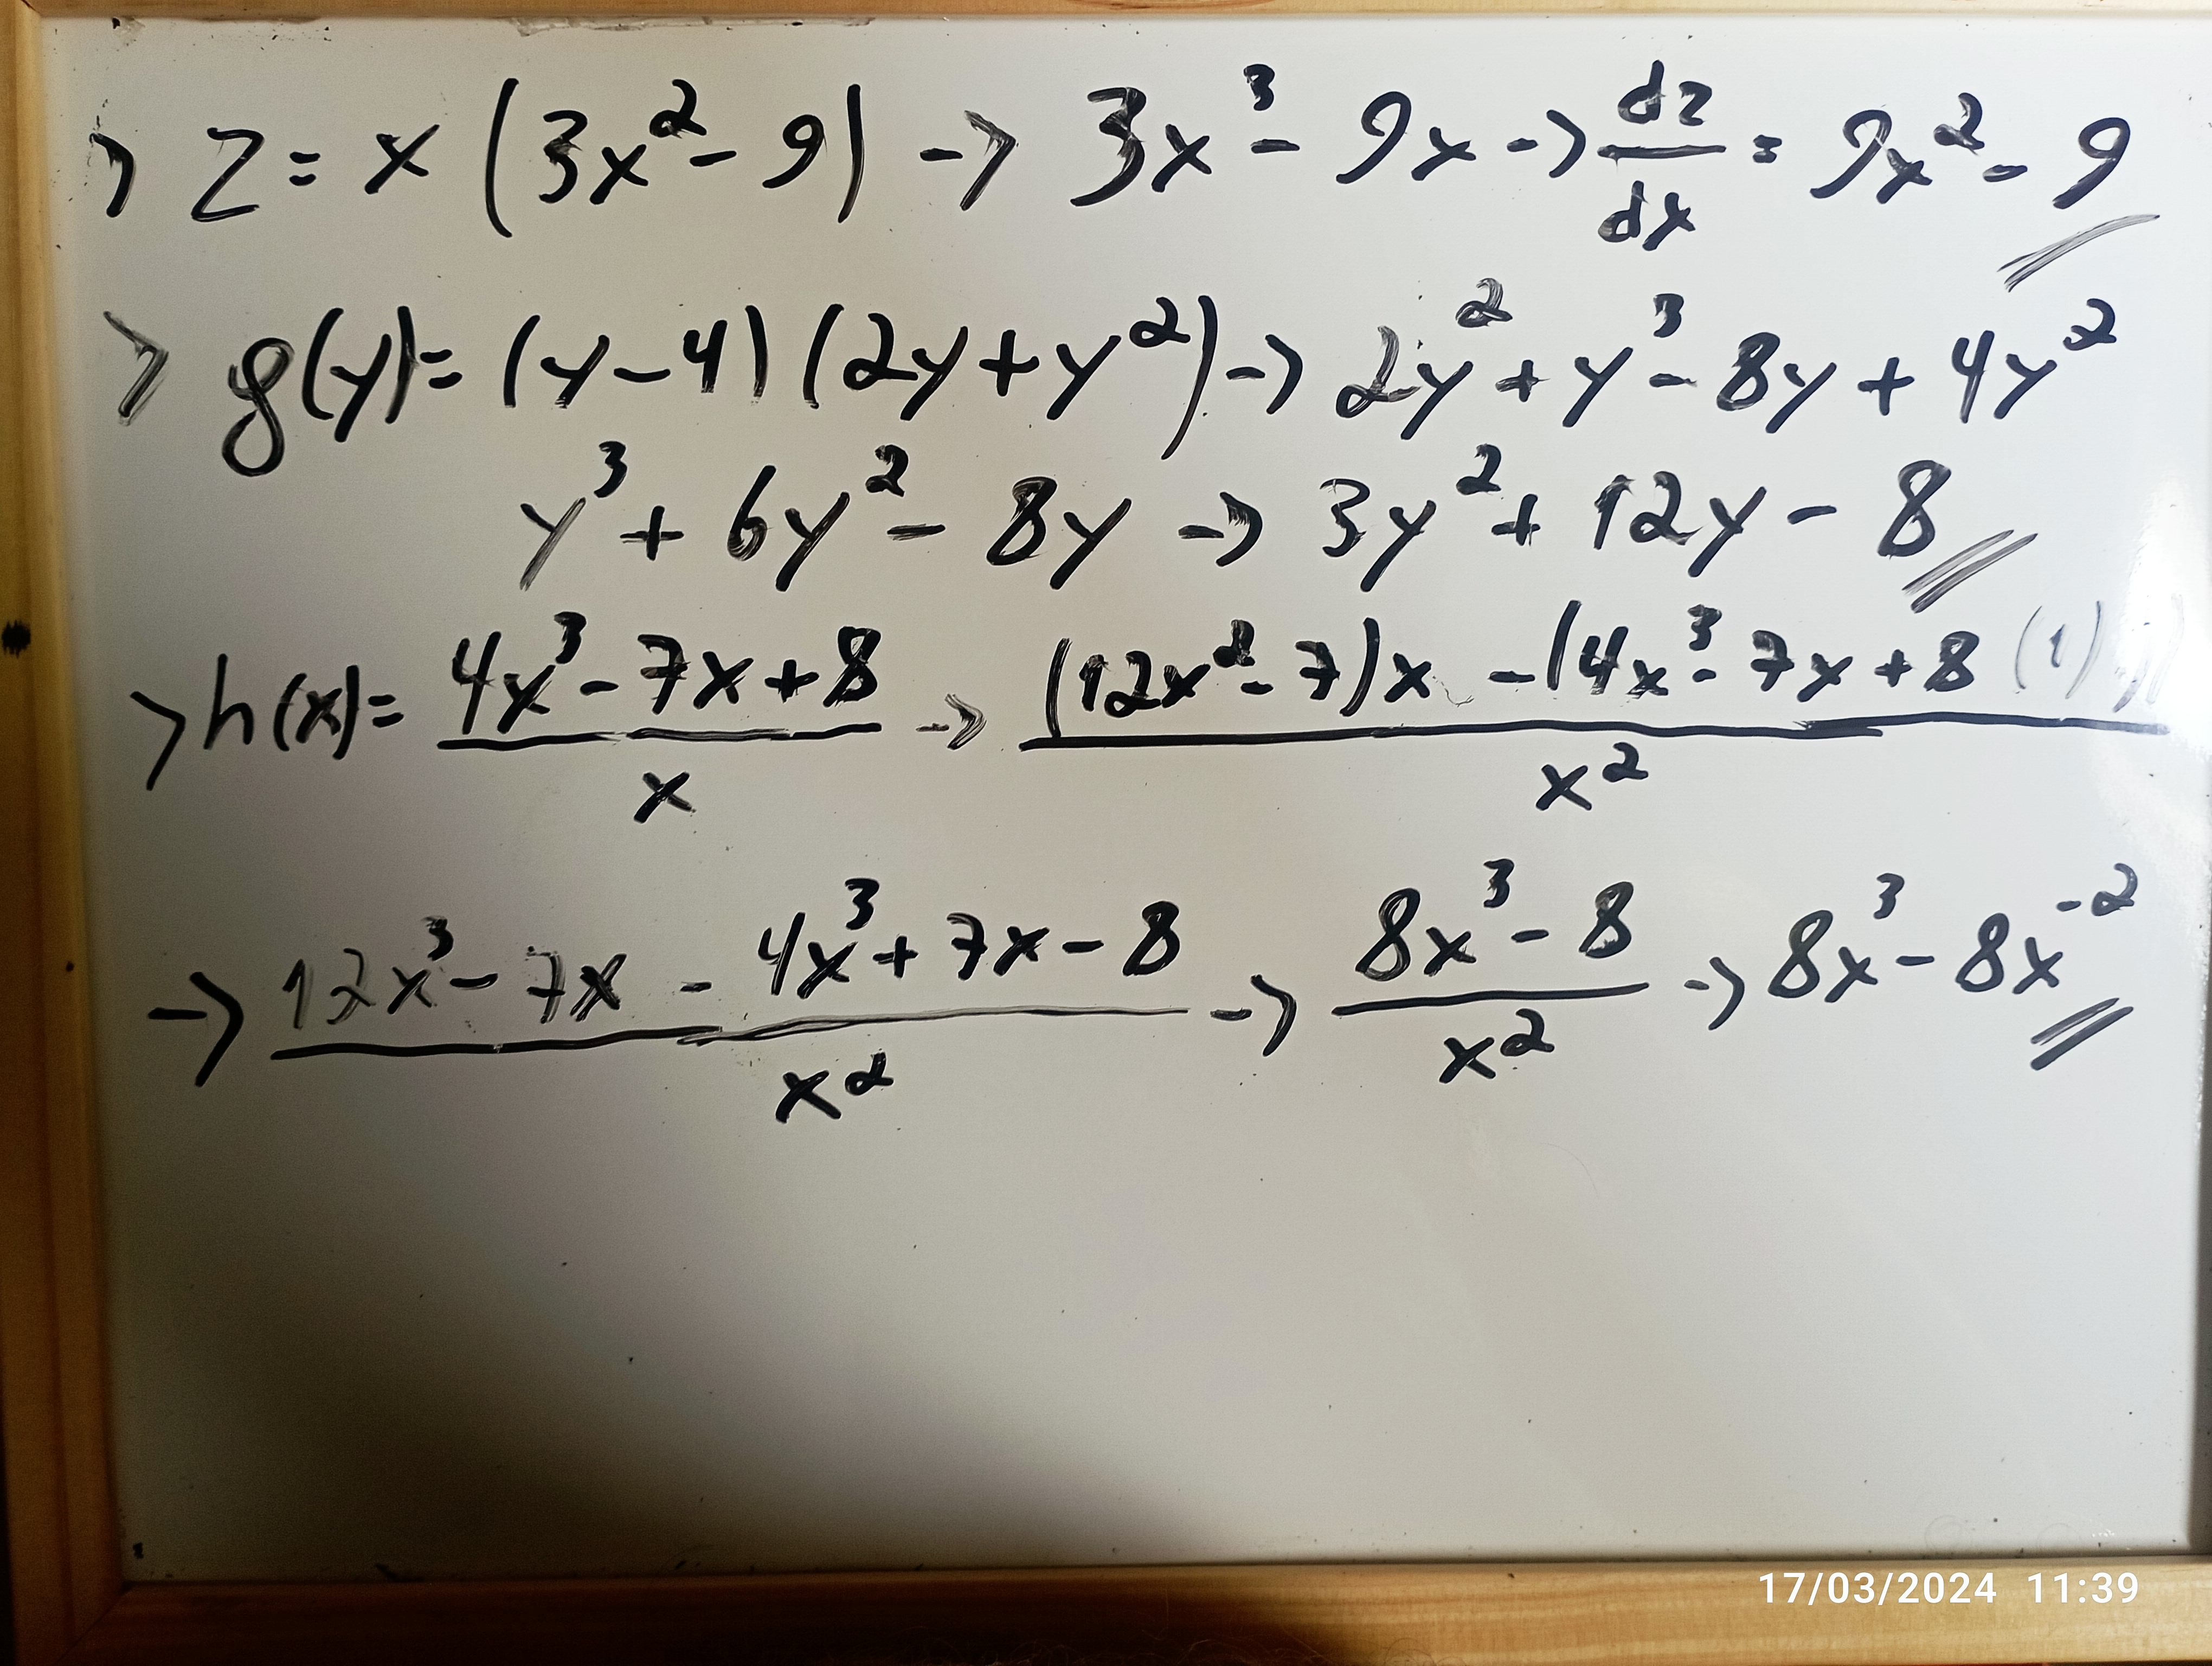 > z = x (3x² - 9) -> 3x³ - 9x -> dz/dx = 9x² - 9
> g(y) = (y - 4) (2y + y²) -> 2y² + y³ - 8y + 4y²
y³ + 6y² - 8y -> 3y² + 12y - 8
> h(x) = (4x³ - 7x + 8)/x -> (12x² - 7)x - (4x³ - 7x + 8 (1))/x²
-> (12x³ - 7x - 4x³ + 7x - 8)/x² -> (8x³ - 8)/x² -> 8x³ - 8x⁻²
17/03/2024 11:39